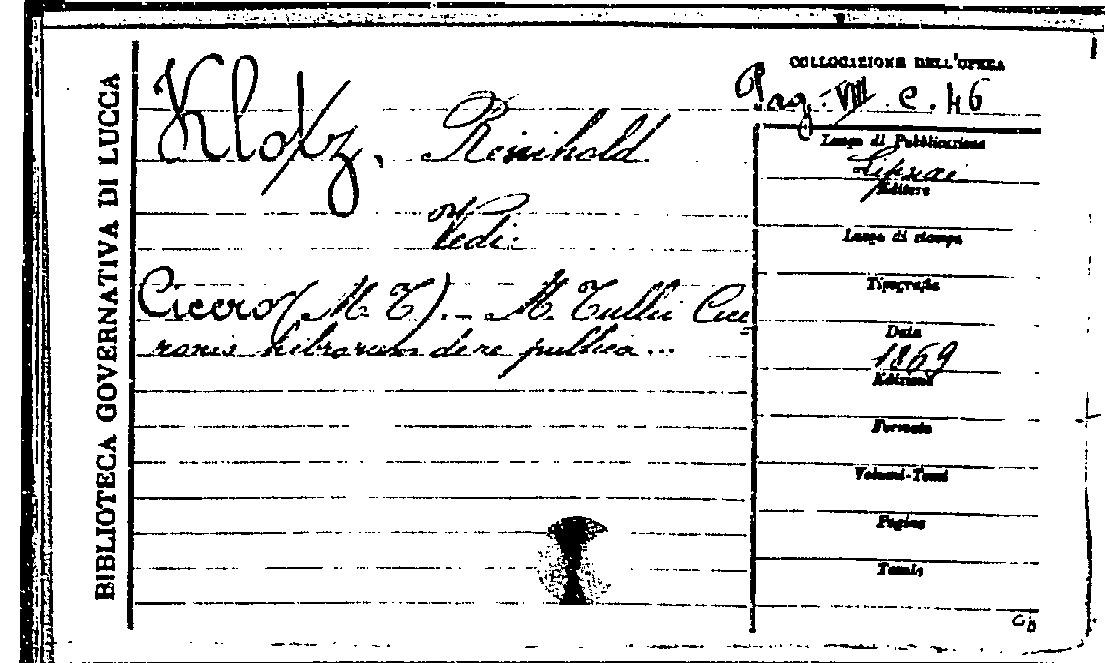 BIBLIOTECA GOVERNATIVA DI LUCCA
Klotz, Reinhold
Vedi:
Cicero (M. T.). - M. Tullii Cice
ronis librorum de re publica ...
COLLOCAZIONE DELL'OPERA
Pag. VIII e. 46
Luogo di Pubblicazione
Lipsiae
Editore
Luogo di stampa
Tipografia
Data
1869
Edizione
Formato
Volumi-Tomi
Pagine